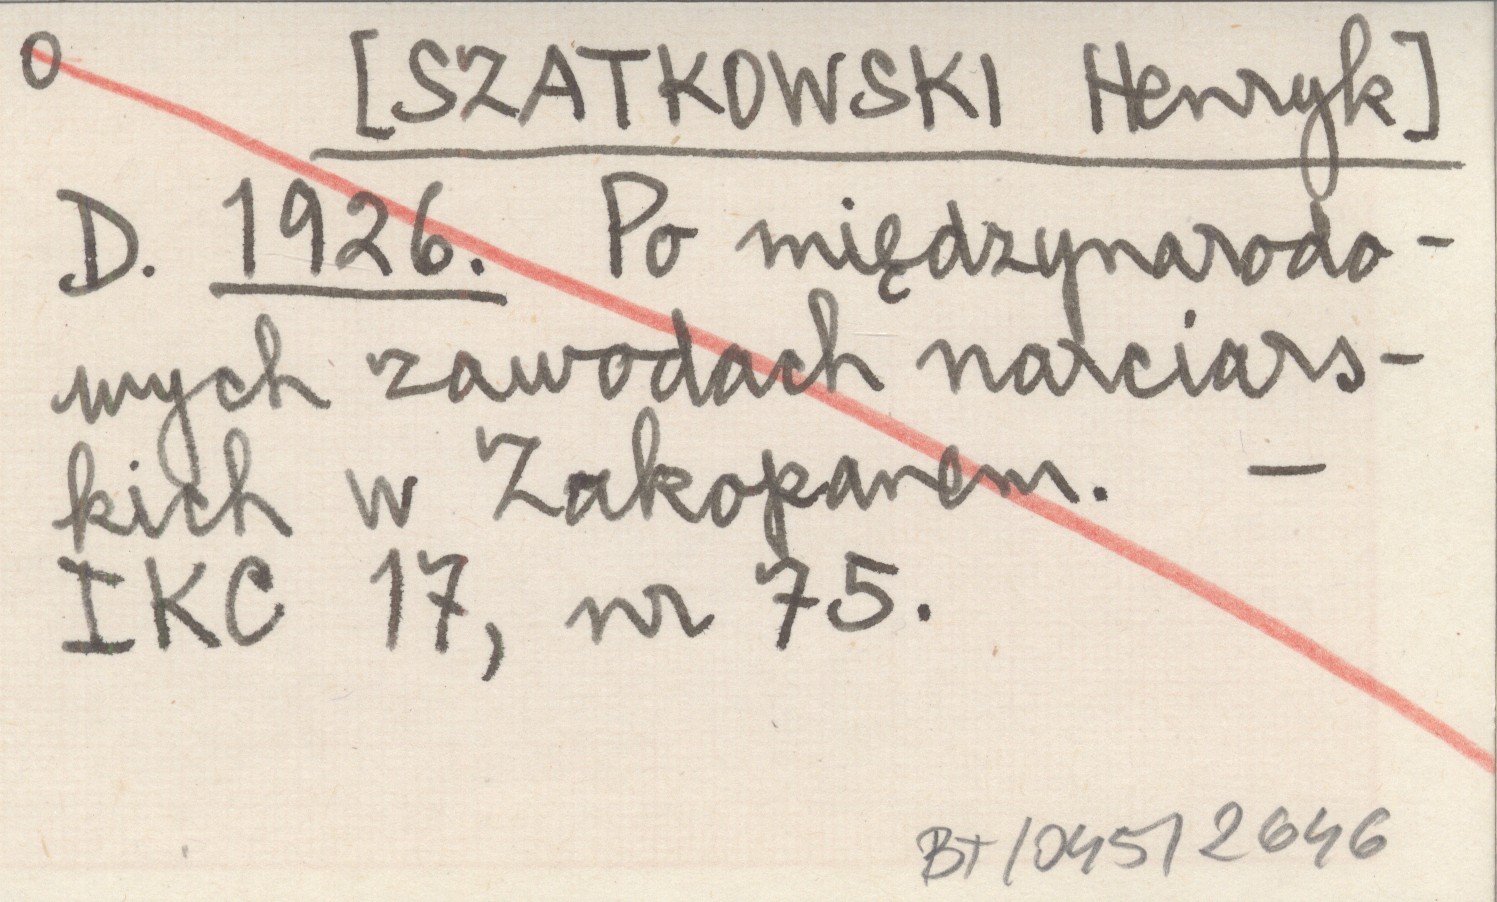 O [SZATKOWSKI Henryk]
D. 1926. Po międzynarodo-
wych zawodach narciars-
kich w Zakopanem. —
IKC 17, nr 75.
BT/045/2646